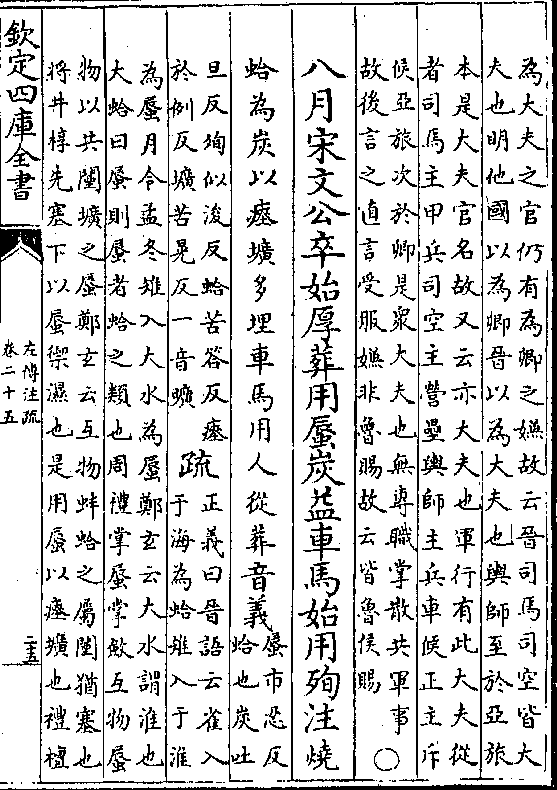 為大夫之官仍有為卿之嫌故云晉司馬司空皆大
夫也明他國以為卿晉以為大夫也輿師至於亞旅
本是大夫官名故又云亦大夫也軍行有此大夫從
者司馬主甲兵司空主營壘輿師主兵車候正主斥
候亞旅次於卿是衆大夫也無專職掌散共軍事
故後言之直言受服嫌非魯賜故云皆魯侯賜○
八月宋文公卒始厚葬用蜃炭益車馬始用殉注燒
蛤為炭以瘞壙多埋車馬用人從葬音義
蜃市忍反
蛤也炭吐
旦反殉似浚反蛤苦答反瘞
於例反壙苦晃反一音曠
疏
正義曰晉語云雀入
于海為蛤雉入于淮
為蜃月令孟冬雉入大水為蜃鄭玄云大水謂淮也
大蛤曰蜃則蜃者蛤之類也周禮掌蜃掌斂互物蜃
物以共闉壙之蜃鄭玄云互物蚌蛤之屬闉猶塞也
將井椁先塞下以蜃禦濕也是用蜃以瘞壙也禮檀
欽定四庫全書
左傳注疏
卷二十五
二十五